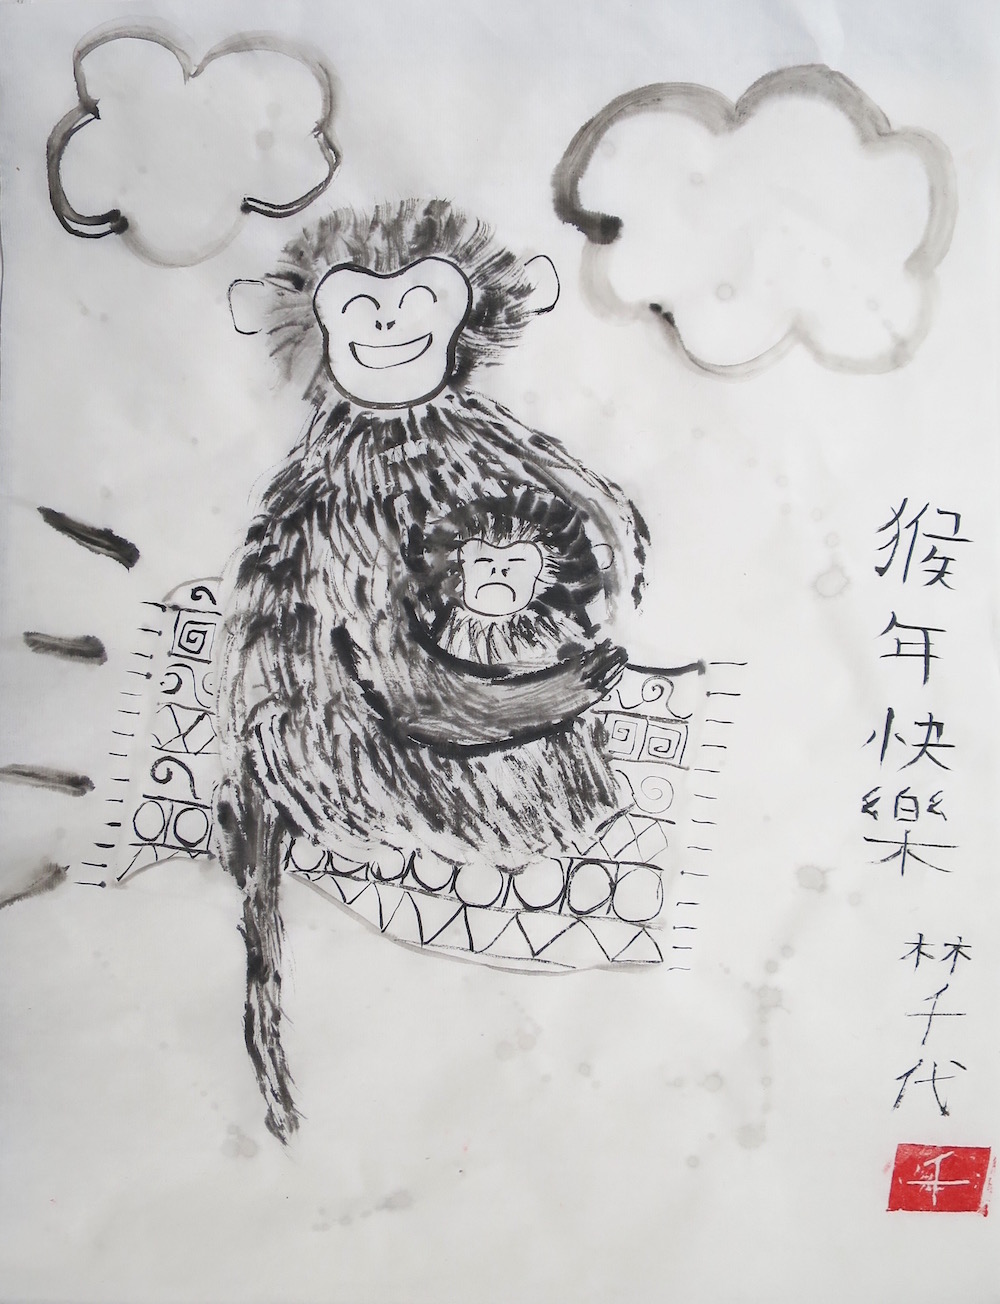 猴年快樂
林千代
千